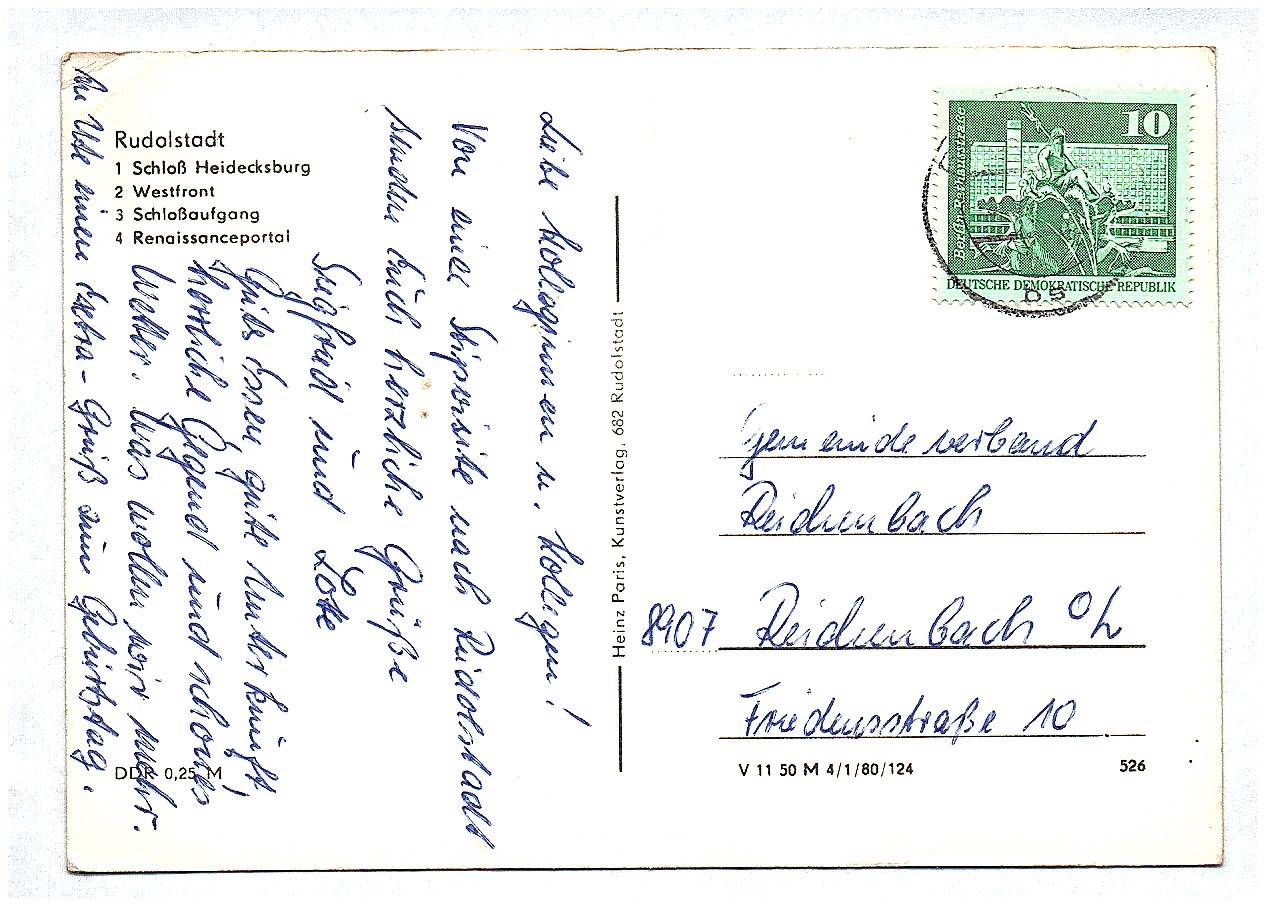 Rudolstadt
1 Schloß Heidecksburg
2 Westfront
3 Schloßaufgang
4 Renaissanceportal
Liebe Kolleginnen u. Kollegen!
Von einer Stipvisite nach Rudolstadt
senden Euch herzliche Grüße
Siegfried und Lote
Gutes Essen, gute Unterkunft,
herrliche Gegend und schönes
Wetter. Was wollen wir mehr.
An Ute einen Extra-Gruß zum Geburtstag.
DDR 0,25 M
Heinz Paris, Kunstverlag, 682 Rudolstadt
10
Berlin, Rathausstraße
DEUTSCHE DEMOKRATISCHE REPUBLIK
Gemeindeverband
Reichenbach
8907 Reichenbach O/L
Friedensstraße 10
V 11 50 M 4/1/80/124
526